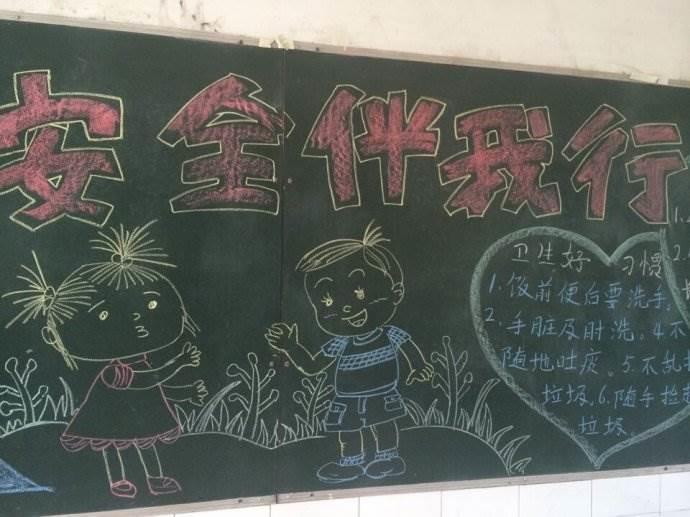 安全伴我行
卫生好 习惯
1.饭前便后要洗手。
2.手脏及时洗。4.不
随地吐痰。5.不乱
垃圾.6.随手捡
垃圾.
1.
2.